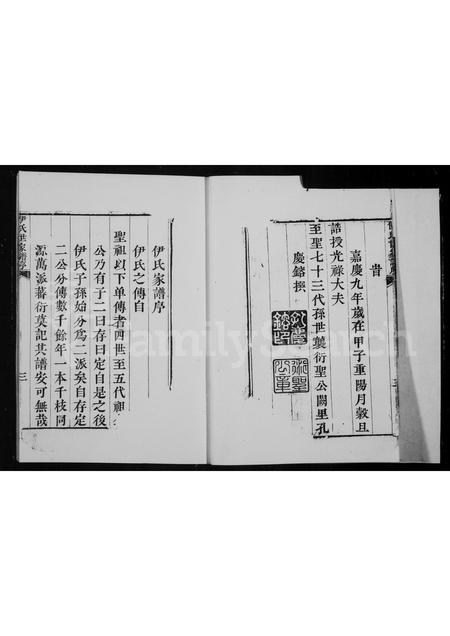 昔
嘉慶九年歲在甲子重陽月穀旦
誥授光祿大夫
至聖七十三代孫世襲衍聖公闕里孔
慶鎔撰
伊氏家譜序
伊氏之傳自
聖祖以下單傳者四世至五代祖
公乃有子二曰存曰定自是之後
伊氏子孫始分為二派矣自存定
二公分傳數千餘年一本千枝同
源萬派蕃衍莫記其譜安可無哉
伊氏世家譜序
三
FamilySearch